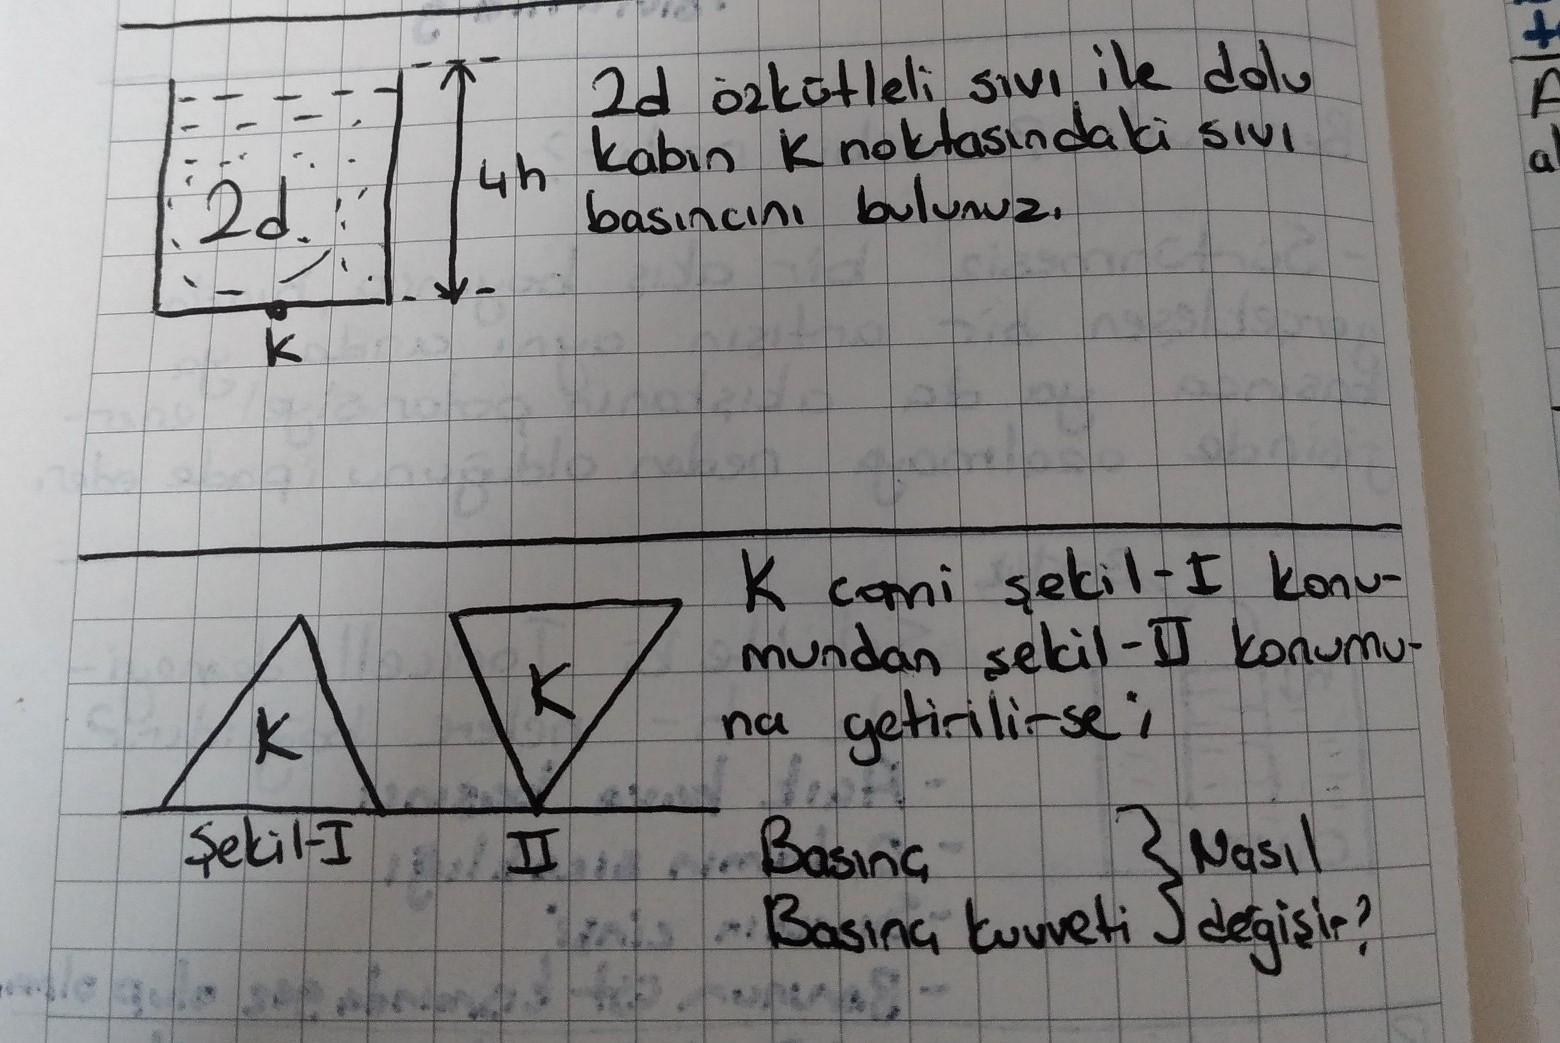 2d özkütleli sıvı ile dolu
kabın K noktasındaki sıvı
basıncını bulunuz.
4h
2d
K
K cami şekil-I konu-
mundan şekil-II konumu-
na getirilirse;
K
K
Şekil-I
II
Basınç
Basınç kuvveti } Nasıl
değişir?